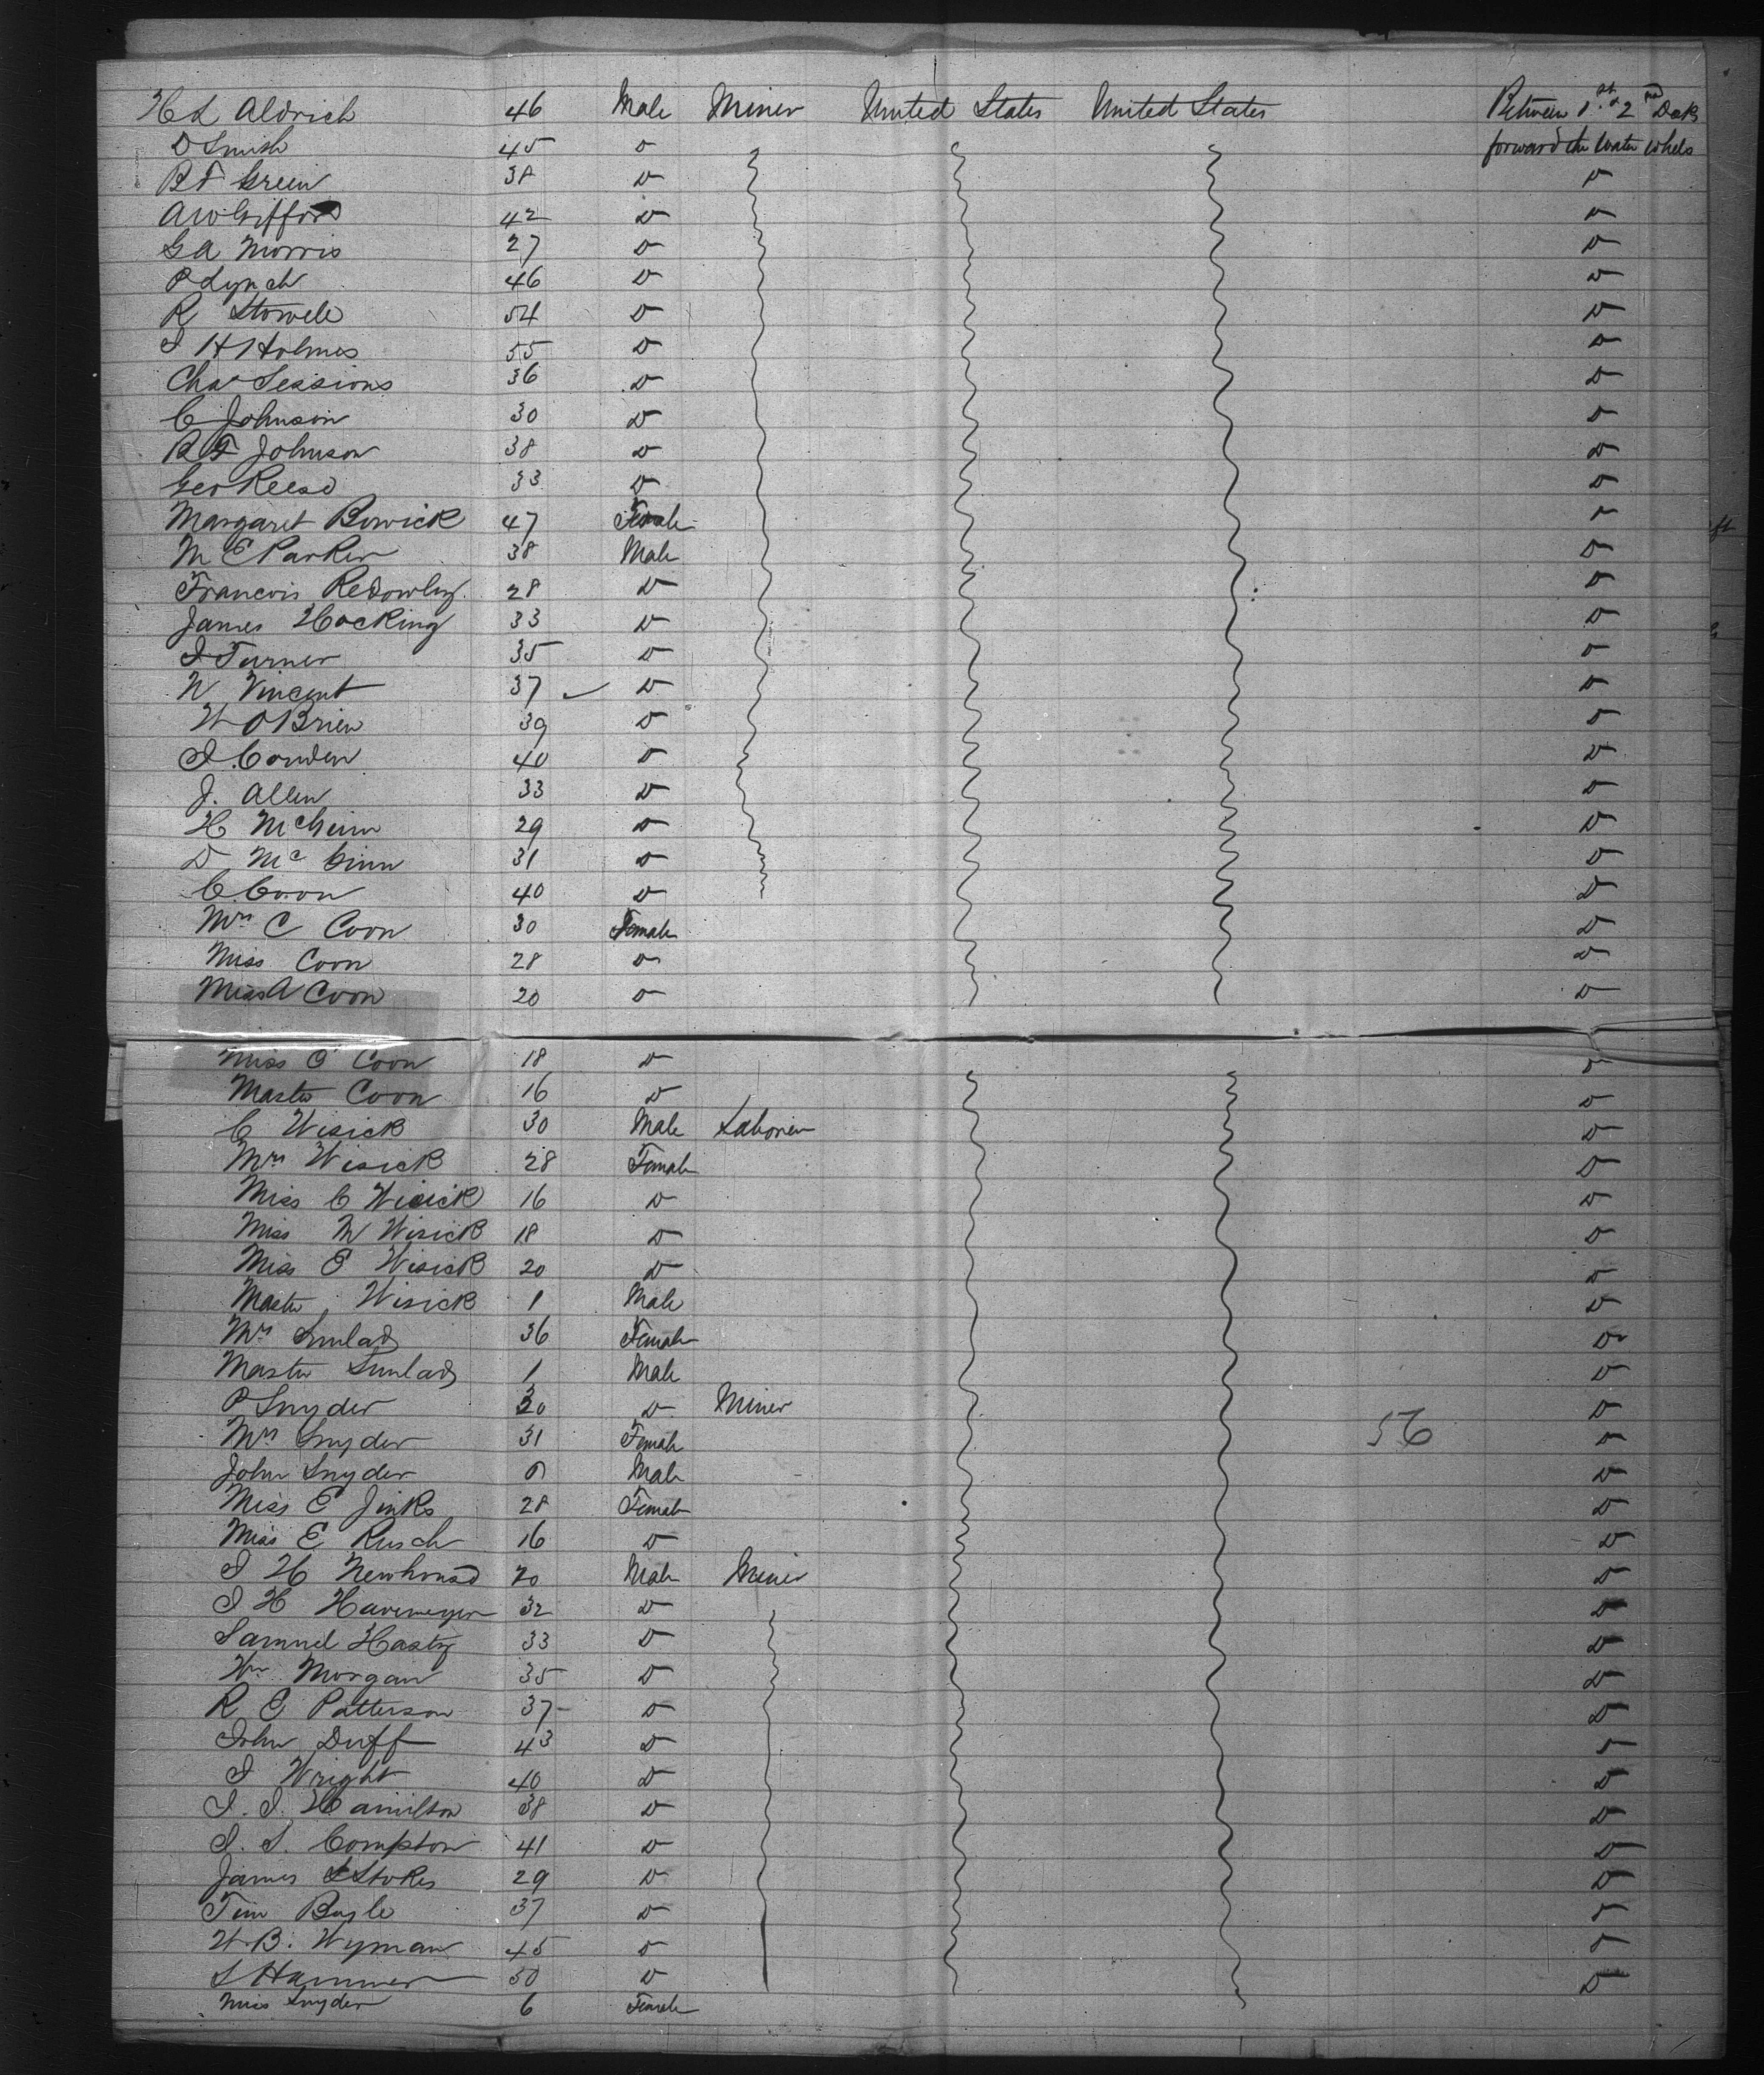 H L Aldrich 46 Male Miner United States United States Between 1st & 2nd Deck
D Smith 45 D forward the Water Whels
B F Green 38 D D
A W Gifford 42 D D
G A Morris 27 D D
P Lynch 46 D D
R Stowele 54 D D
I H Holmes 55 D D
Chas Sessions 36 D D
C Johnson 30 D D
B F Johnson 38 D D
Geo Reese 33 D D
Margaret Bowick 47 Female D
M E Parker 38 Male D
Francois 28 D D
James Hocking 33 D D
I Turner 35 D D
N Vincent 37 D D
W O Brien 39 D D
I. Couden 40 D D
J. Allen 33 D D
H McGinn 29 D D
D Mc Ginn 31 D D
C. Coon 40 D D
Mrs C Coon 30 Female D
Miss Coon 28 D D
Miss A Coon 20 D D
Miss O Coon 18 D D
Master Coon 16 D D
C Wisick 30 Male Laborer D
Mrs Wisick 28 Female D
Miss C Wisick 16 D D
Miss M Wisick 18 D D
Miss E Wisick 20 D D
Master Wisick 1 Male D
Mrs 36 Female D
Master 1 Male D
P Snyder 30 D Miner D
Mrs Snyder 31 Female 56 D
John Snyder Male D
Miss E Jinks 28 Female D
Miss E Rusch 16 D D
I H Newhouse 20 Male Miner D
I H Havemeyer 32 D D
Samuel Hasty 33 D D
Wm Morgan 35 D D
R E Patterson 37 D D
John Duff 43 D D
I Wright 40 D D
I. I. Hamilton 38 D D
I. S. Compton 41 D D
James Stokes 29 D D
Tim Bayle 37 D D
W. B. Wyman 45 D D
S Hammer 30 D D
Miss Snyder 6 Female